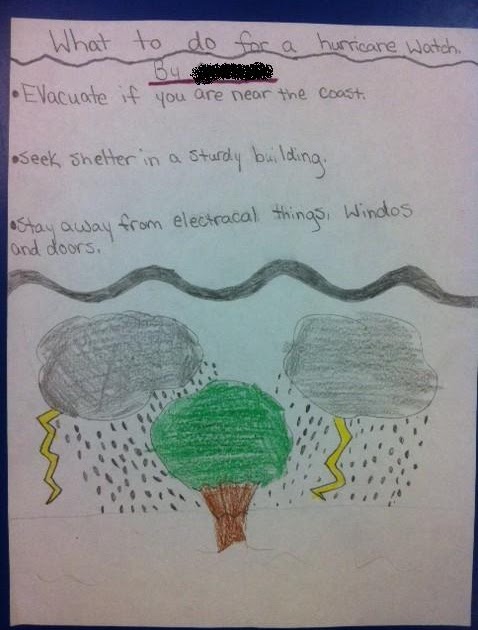 What to do for a hurricare Watch.
By
•Evacuate if you are near the coast.
•Seek shelter in a sturdy building.
•Stay away from electracal things, Windos
and doors.